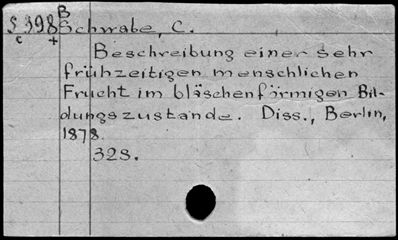 B
S 398 Schwabe, C.
c +
Beschreibung einer sehr
frühzeitigen menschlichen
Frucht im bläschenförmigen Bil-
dungszustande. Diss., Berlin,
1878.
32S.